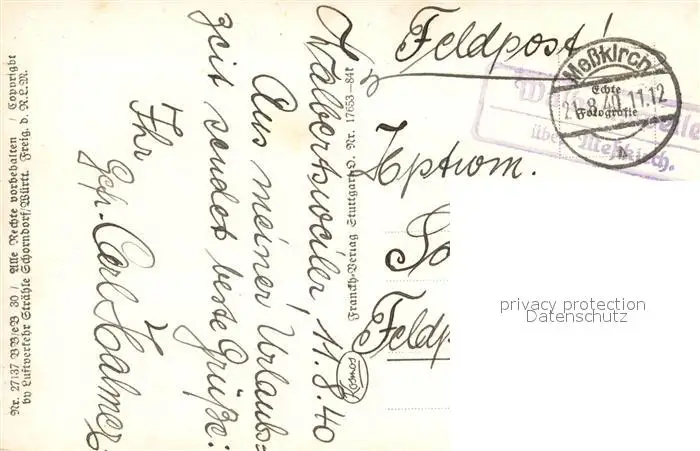 Walbertsweiler, 11.8.40
Aus meiner Urlaubs=
zeit sendet beste Grüße:
Ihr
Gefr. Carl Halmer
Feldpost!
Hptm.
Feldp
Meßkirch
21.8.40.11.12
Echte
Fotografie
über Meßkirch.
Franckh-Verlag Stuttgart-O. Nr. 17653—841
Kosmos
Nr. 27137 BWeB 30 / Alle Rechte vorbehalten / Copyright
by Luftverkehr Strähle Schorndorf/Württ. Freig. d. R.L.M.
privacy protection
Datenschutz